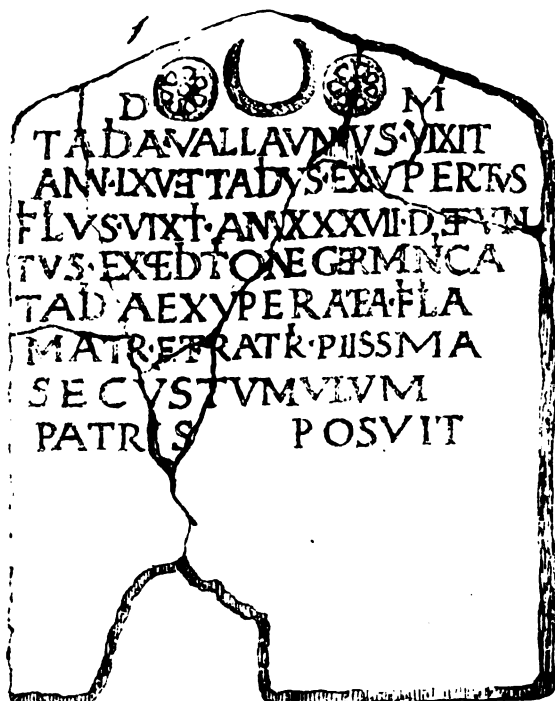 D M
TADA·VALLAVNIVS·VIXIT
ANN·LXVETTADVS·EXVPERTVS
FLVS·VIXT·ANNXXXVII·DEFVN
TVS·EXPEDTONE GERMNCA
TADAEXVPERATA·FLA
MATR·ETRATR·PIISSMA
SECVSTVMVLVM
PATRIS POSVIT